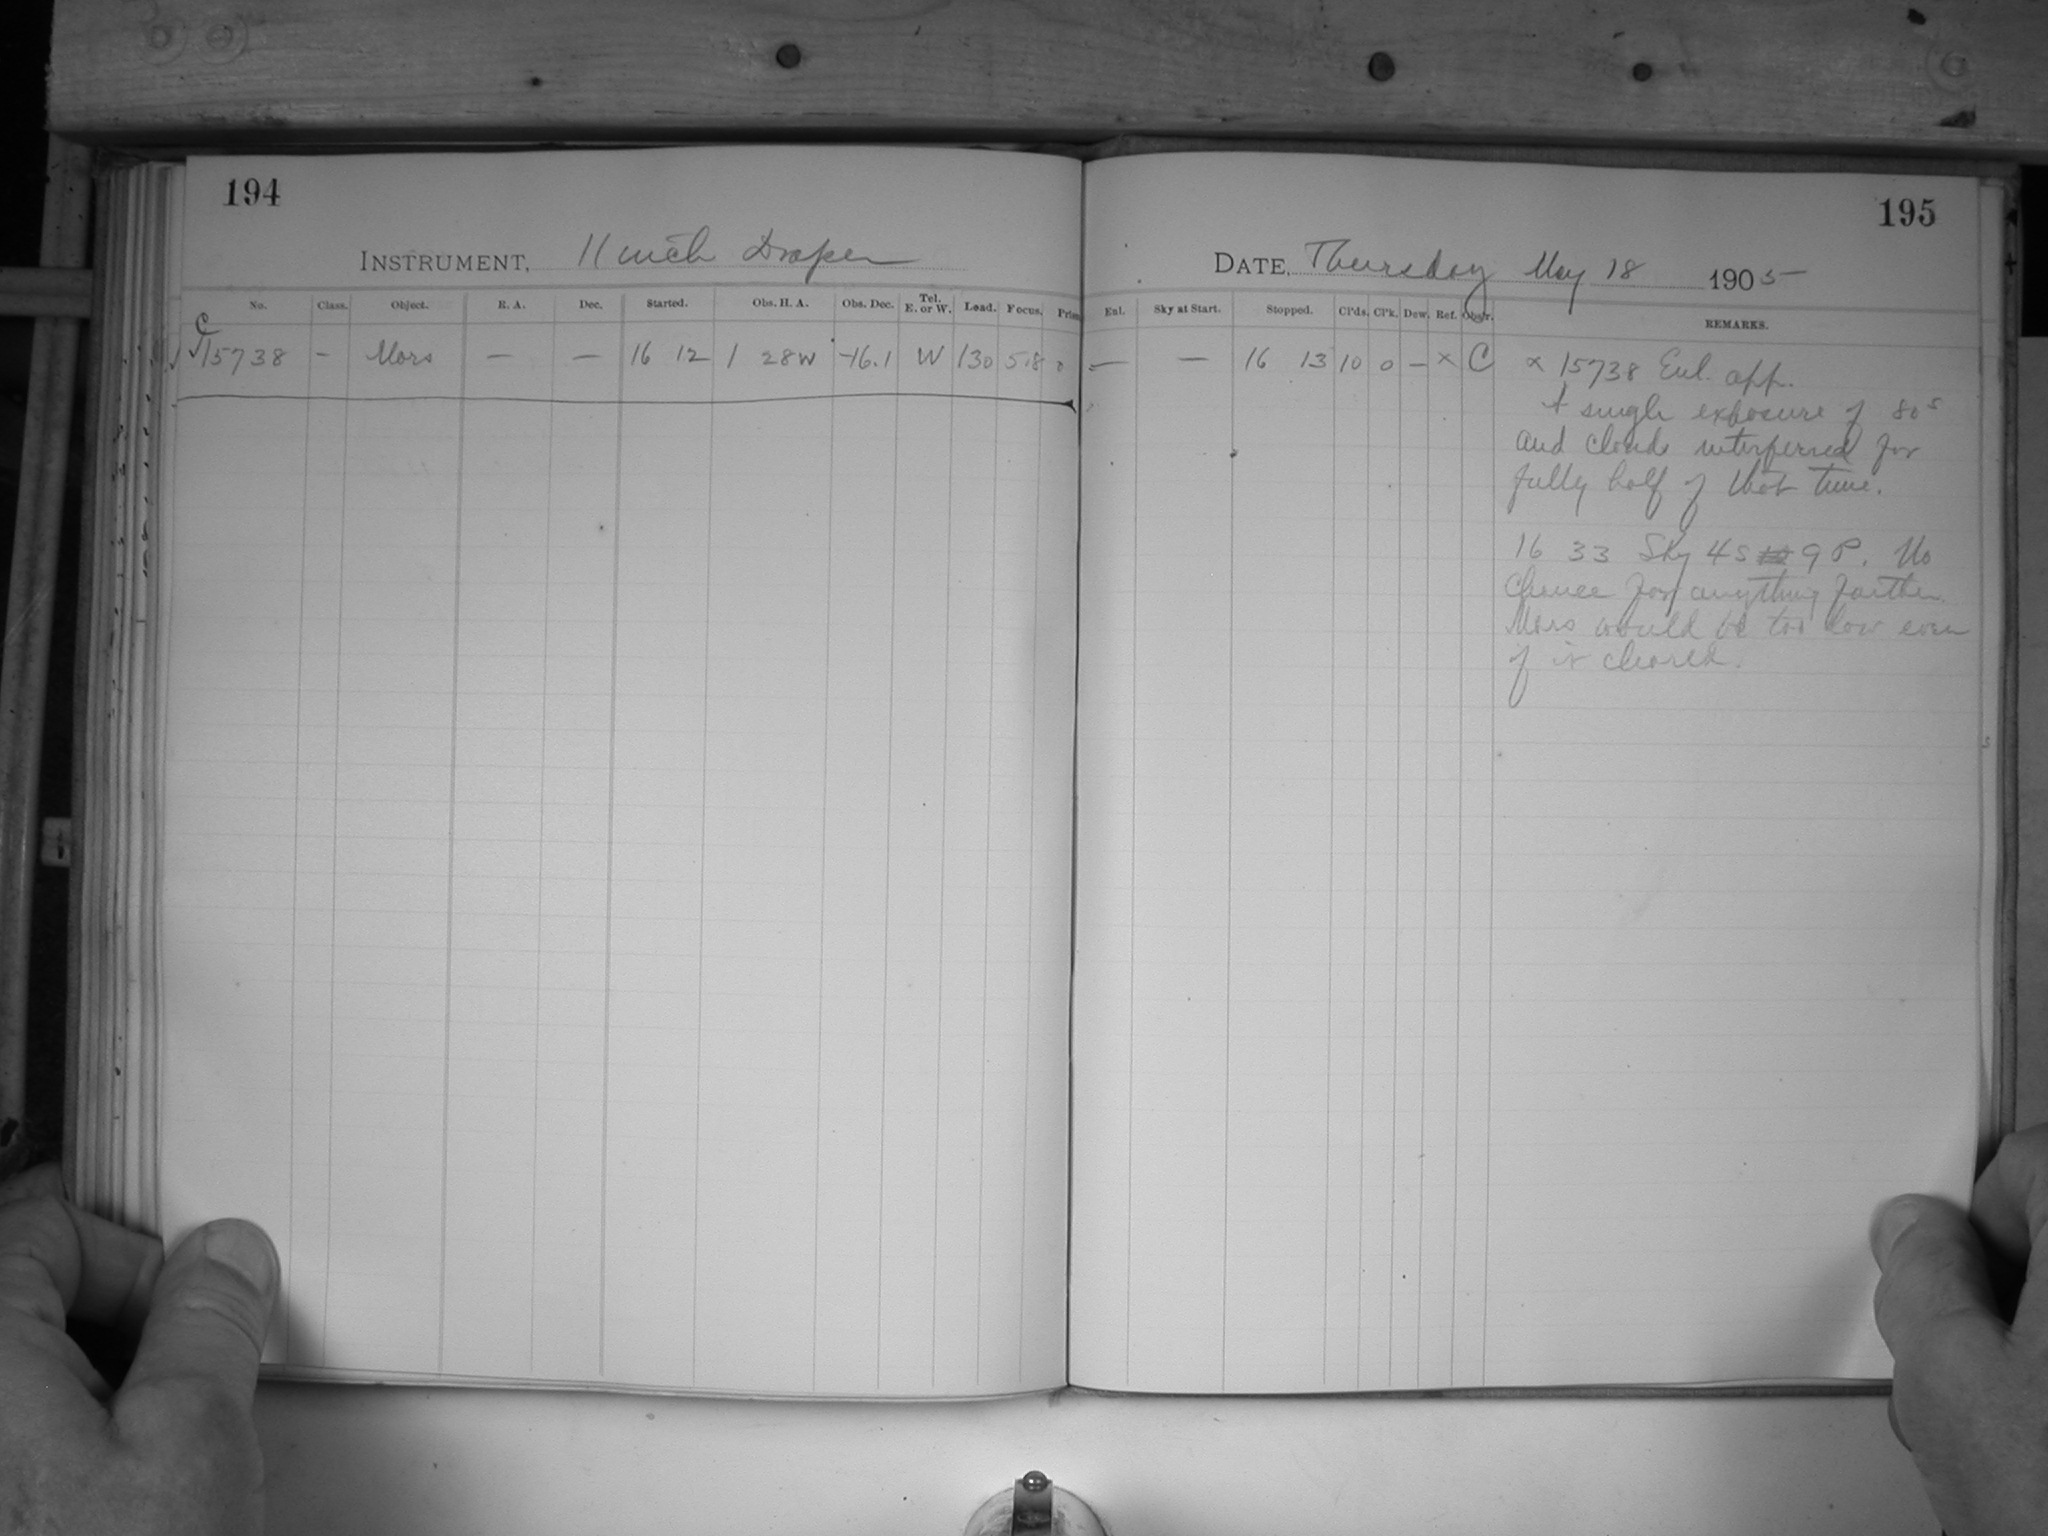 194
INSTRUMENT, 11 inch Draper
No. Class. Object. R. A. Dec. Started. Obs. H. A. Obs. Dec. Tel. E. or W. Load. Focus. Prism
C
√√15738 – Mars — — 16 12 1 28 W -16.1 W 130 5.8 0
195
DATE, Thursday May 18 1905
Enl. Sky at Start. Stopped. Cl'ds. Cl'k. Dew. Ref. Obs'r. REMARKS.
— — 16 13 10 0 – × C α 15738 Enl. app.
A single exposure of 80s
and clouds interferred for
fully half of that time.
16 33 Sky 4S 9P. No
chance for anything farther
Mars would be too low even
if it cleared.